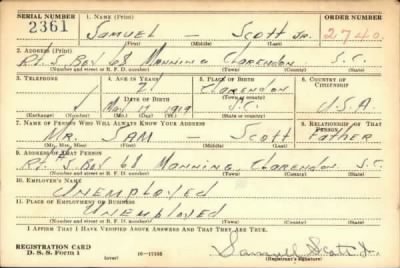 SERIAL NUMBER 1. NAME (Print) ORDER NUMBER
2361 SAMUEL — SCOTT JR. 2740
(First) (Middle) (Last)
2. ADDRESS (Print)
Rt. 5 Box 68 MANNING CLARENDON S.C.
(Number and street or R. F. D. number) (Town) (County) (State)
3. TELEPHONE 4. AGE IN YEARS 5. PLACE OF BIRTH 6. COUNTRY OF CITIZENSHIP
21 CLARENDON
DATE OF BIRTH (Town or county)
May 17 1919 S.C. U.S.A.
(Exchange) (Number) (Mo.) (Day) (Yr.) (State or country)
7. NAME OF PERSON WHO WILL ALWAYS KNOW YOUR ADDRESS 8. RELATIONSHIP OF THAT PERSON
MR. SAM — SCOTT FATHER
(Mr., Mrs., Miss) (First) (Middle) (Last)
9. ADDRESS OF THAT PERSON
Rt. 5 Box 68 MANNING, CLARENDON S.C.
(Number and street or R. F. D. number) (Town) (County) (State)
10. EMPLOYER'S NAME
UNEMPLOYED
11. PLACE OF EMPLOYMENT OR BUSINESS
UNEMPLOYED
(Number and street or R. F. D. number) (Town) (County) (State)
I AFFIRM THAT I HAVE VERIFIED ABOVE ANSWERS AND THAT THEY ARE TRUE.
REGISTRATION CARD
D. S. S. Form 1 (over) 16-17105 (Registrant's signature)
Samuel Scott Jr.